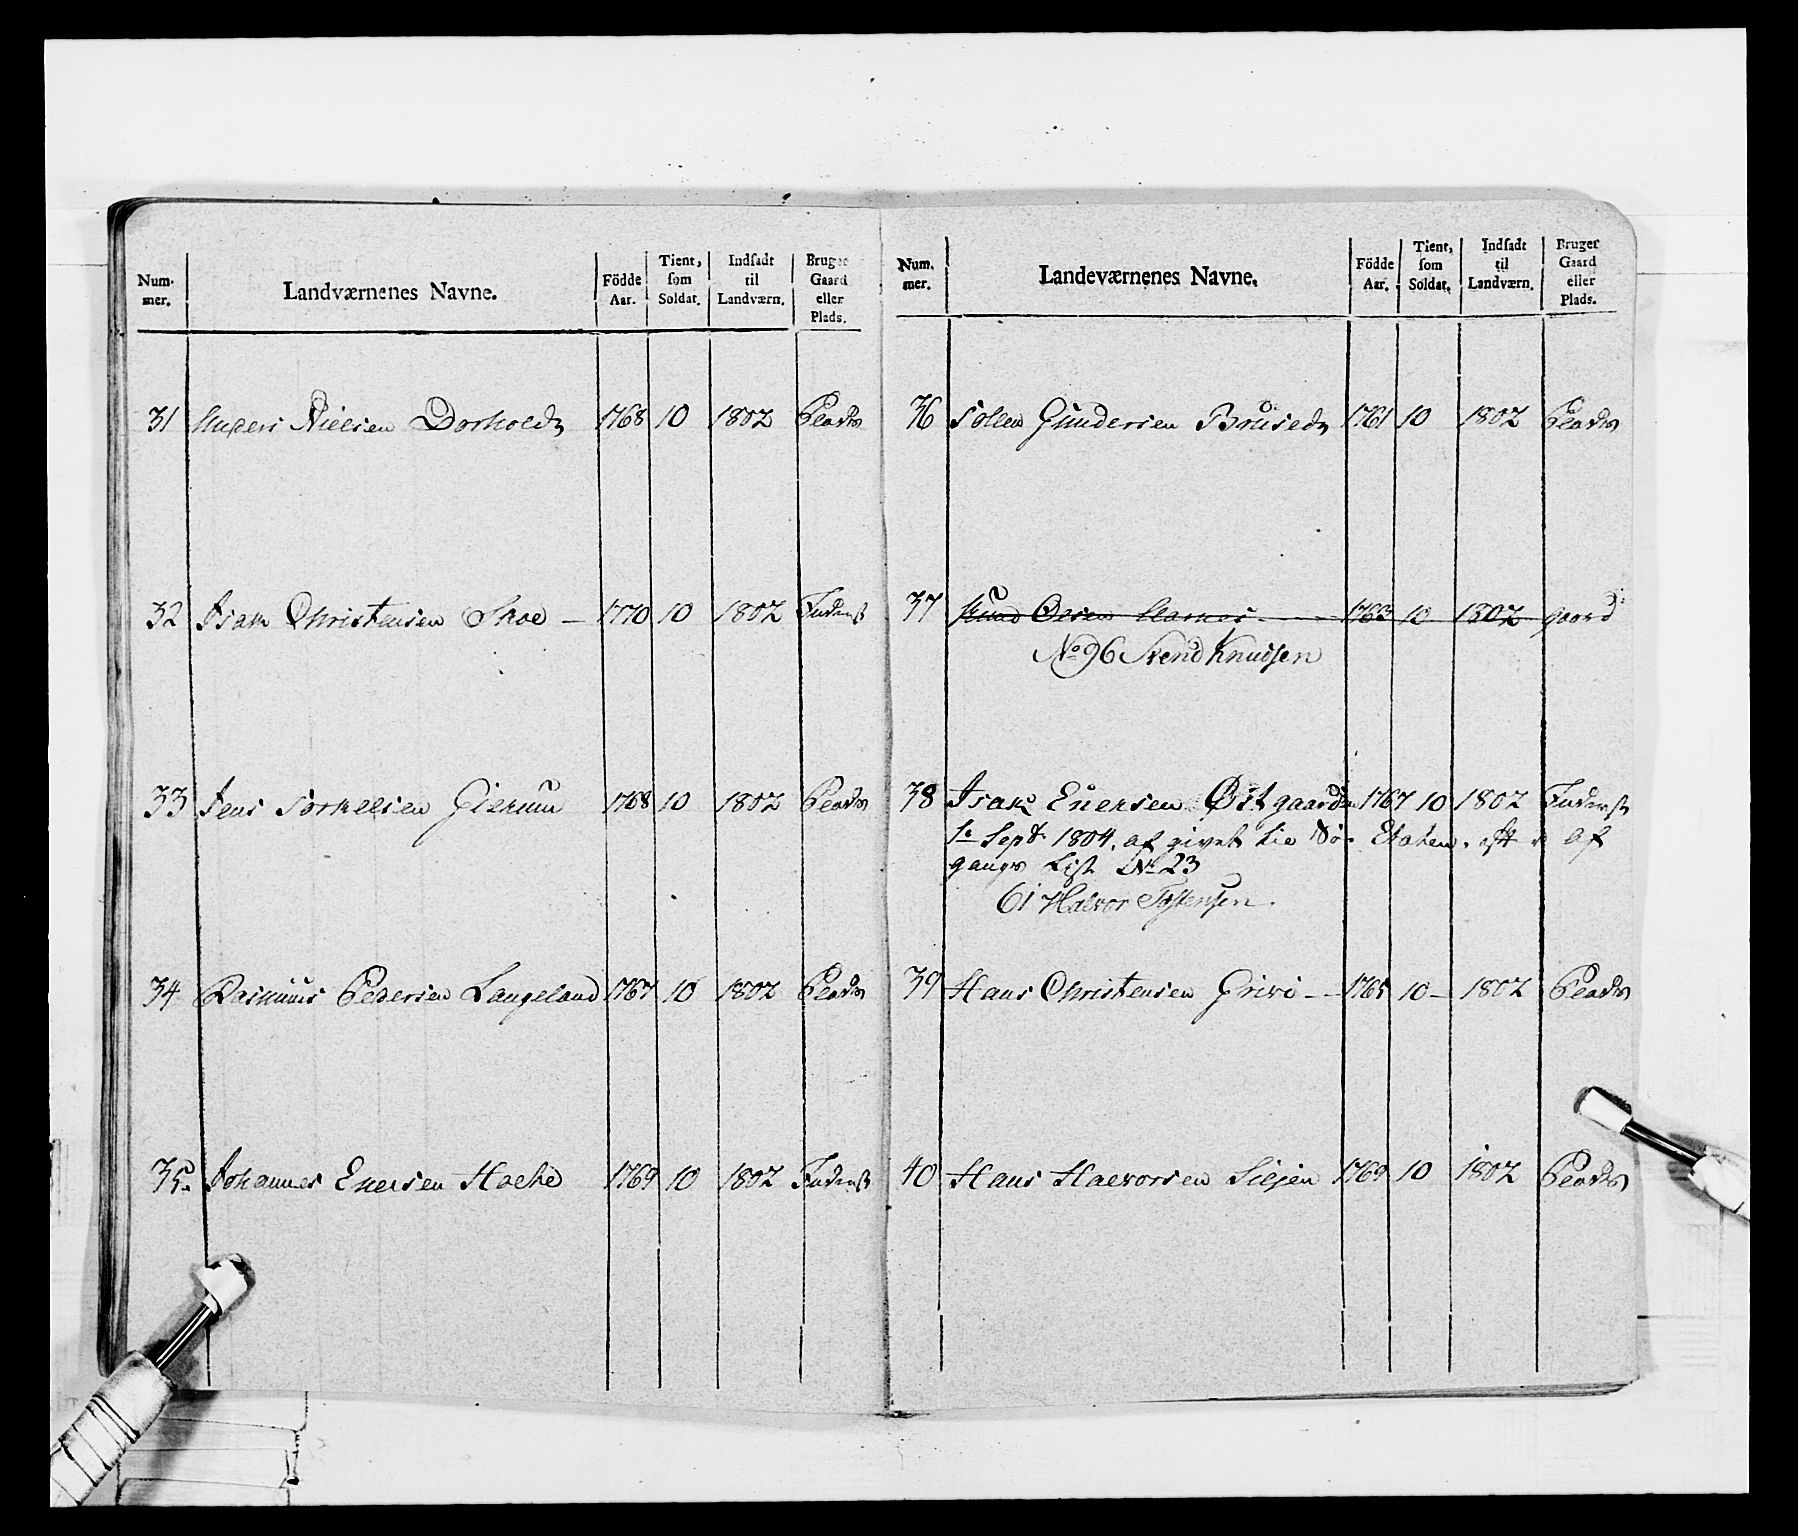 Num-mer. Landværnenes Navne. Födde Aar. Tient, som Soldat. Indsadt til Landværn. Bruger Gaard eller Plads.
31 Anders Nielsen Dorholdt 1768 10 1802 Plads
32 Isak Christensen Skoe — 1770 10 1802 Inderst
33 Jens Torkelsen Gierum 1768 10 1802 Plads
34 Rasmus Pedersen Langeland 1767 10 1802 Plads
35. Johannes Enersen 1769 10 1802 Inderst
Num-mer. Landeværnenes Navne. Födde Aar. Tient, som Soldat. Indsadt til Landværn. Bruger Gaard eller Plads.
36 Gundersen 1761 10 1802 Plads
37 Knud Olsen 1763 10 1802 gaard
No 96 Svend Knudsen
38 Isak Enersen Østgaarden 1767 10 1802 Inderst
Sept. 1804. af givet til Sø- Etaten. af
gangs List No 23
61 Halvor Tostensen.
39 Hans Christensen Grivi - - 1765 10 - 1802 Plads
40 Hans Halvorsen Siljen 1769 10 1802 Plads